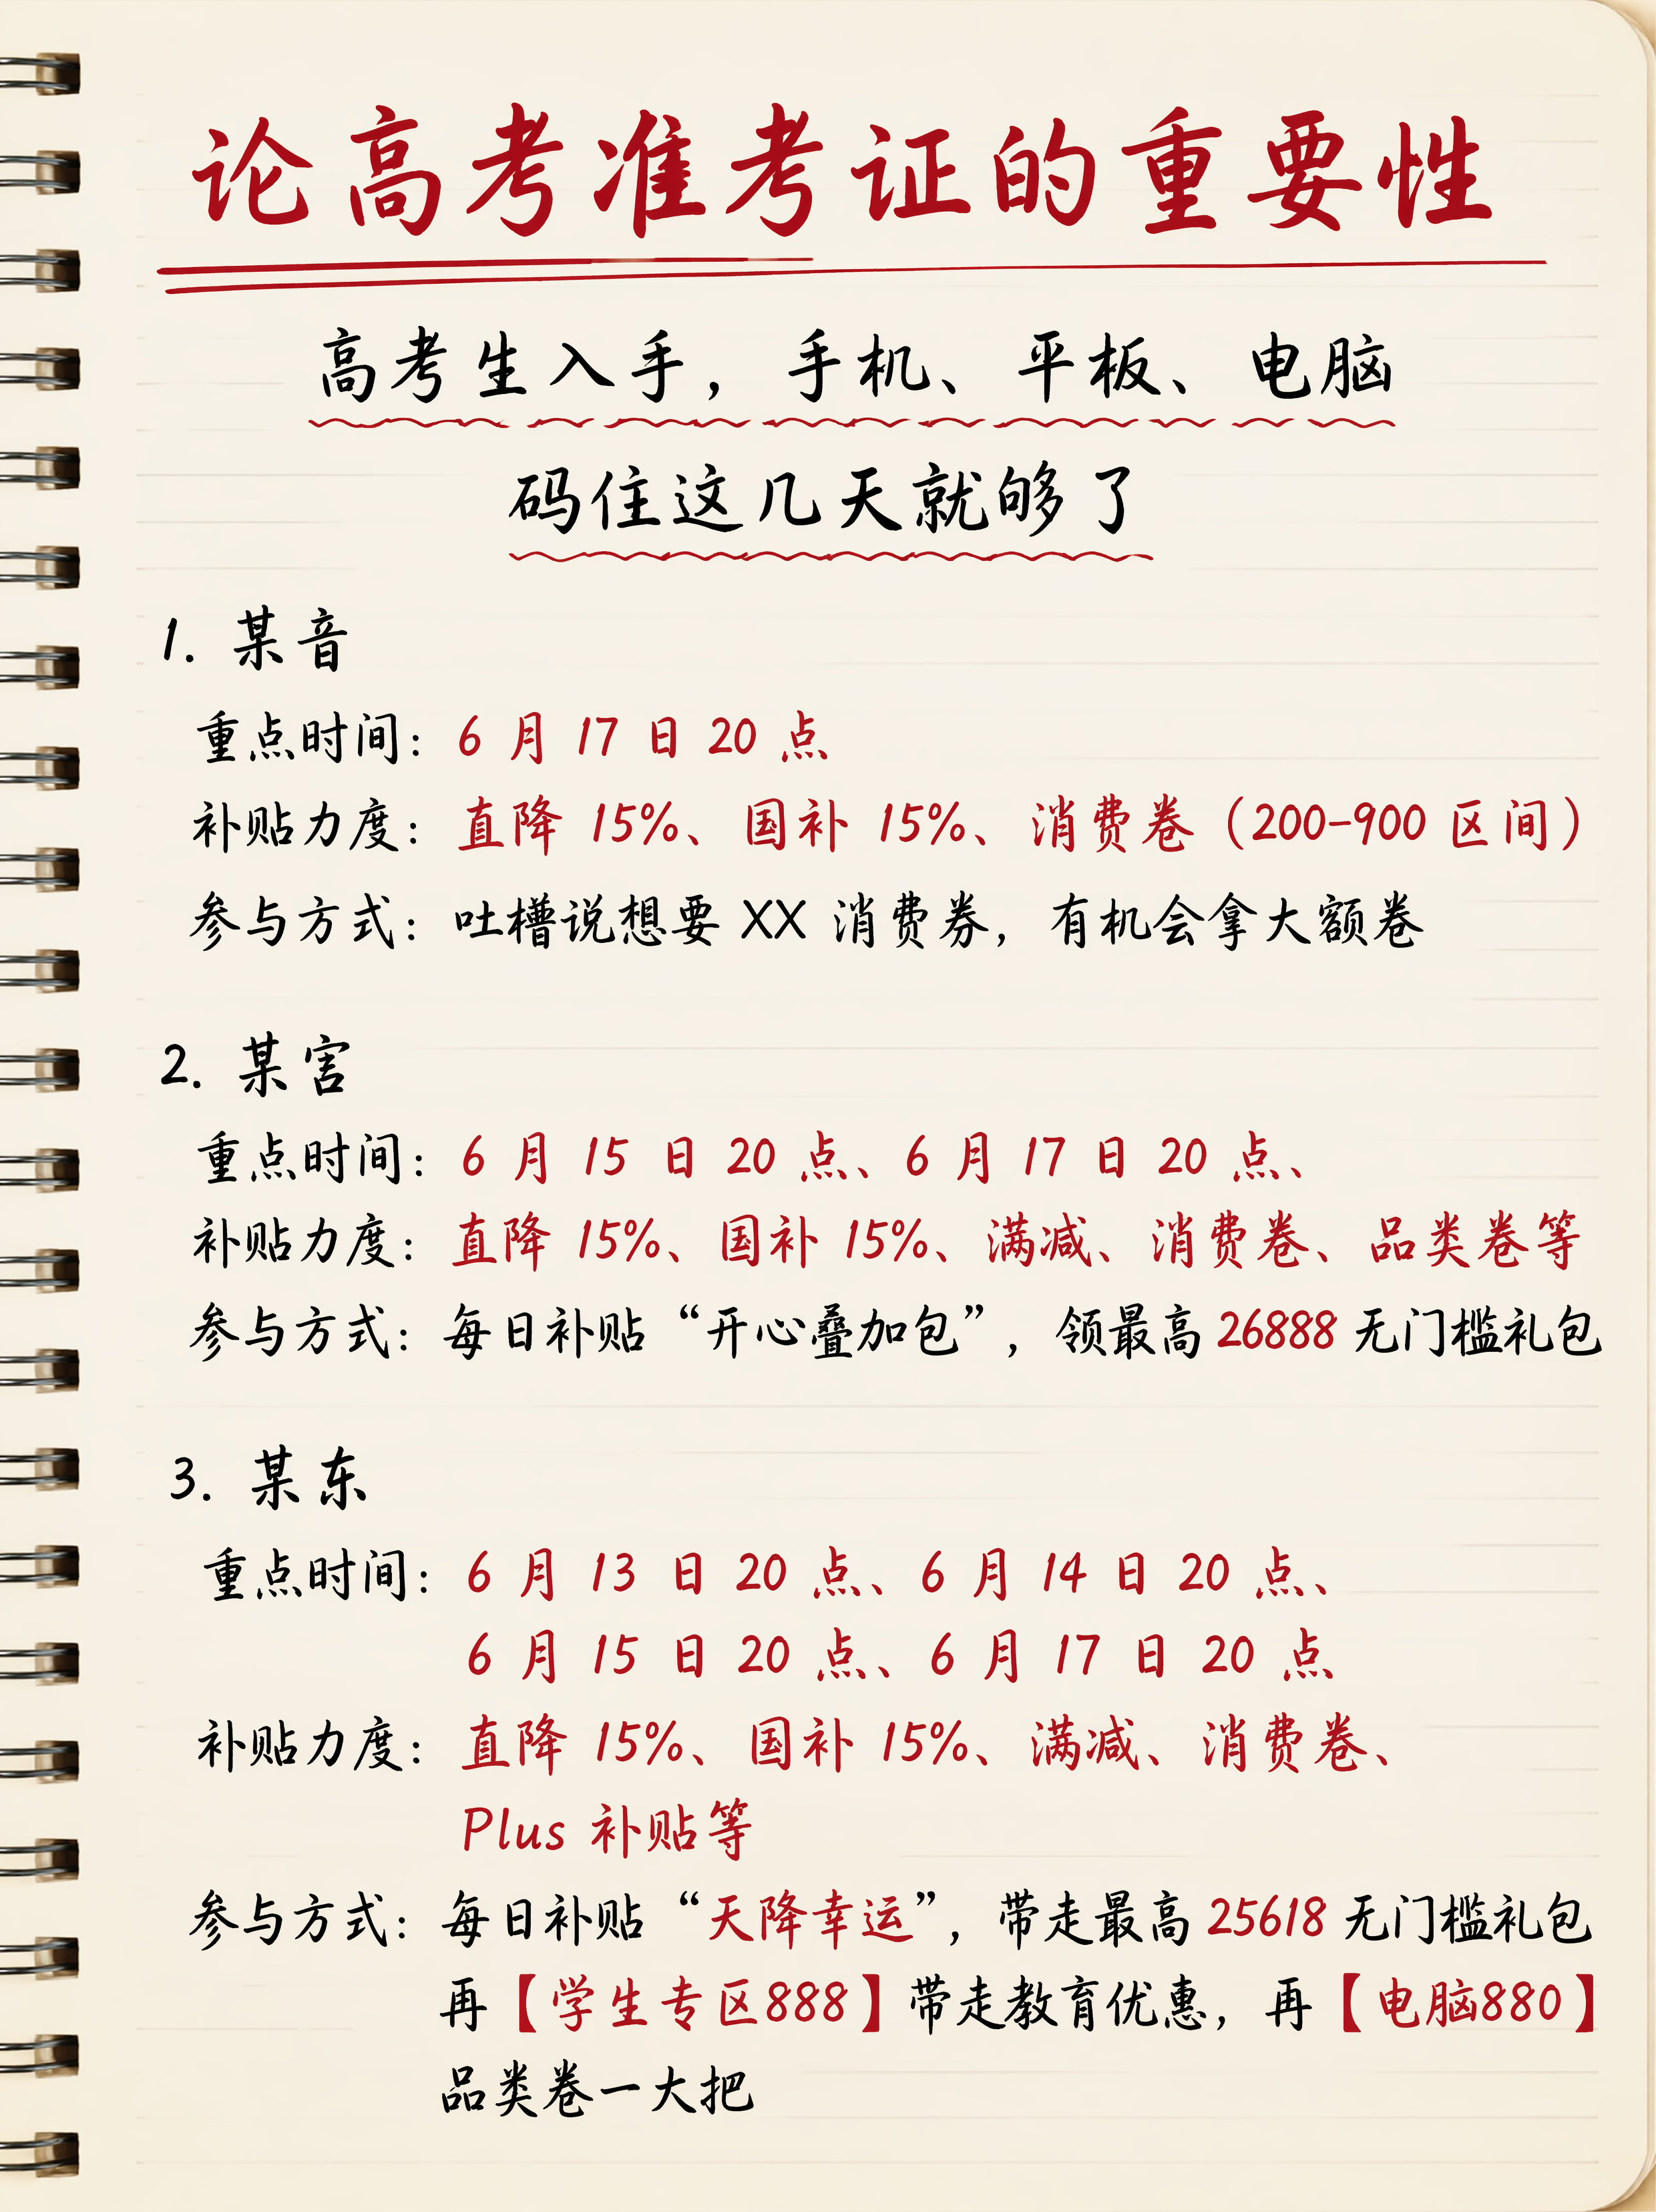 论高考准考证的重要性
高考生入手，手机、平板、电脑
码住这几天就够了
1. 某音
重点时间：6 月 17 日 20 点
补贴力度：直降 15%、国补 15%、消费卷（200-900 区间）
参与方式：吐槽说想要 XX 消费券，有机会拿大额卷
2. 某害
重点时间：6 月 15 日 20 点、6 月 17 日 20 点、
补贴力度：直降 15%、国补 15%、满减、消费卷、品类卷等
参与方式：每日补贴“开心叠加包”，领最高 26888 无门槛礼包
3. 某东
重点时间：6 月 13 日 20 点、6 月 14 日 20 点、
6 月 15 日 20 点、6 月 17 日 20 点
补贴力度：直降 15%、国补 15%、满减、消费卷、
Plus 补贴等
参与方式：每日补贴“天降幸运”，带走最高 25618 无门槛礼包
再【学生专区888】带走教育优惠，再【电脑880】
品类卷一大把